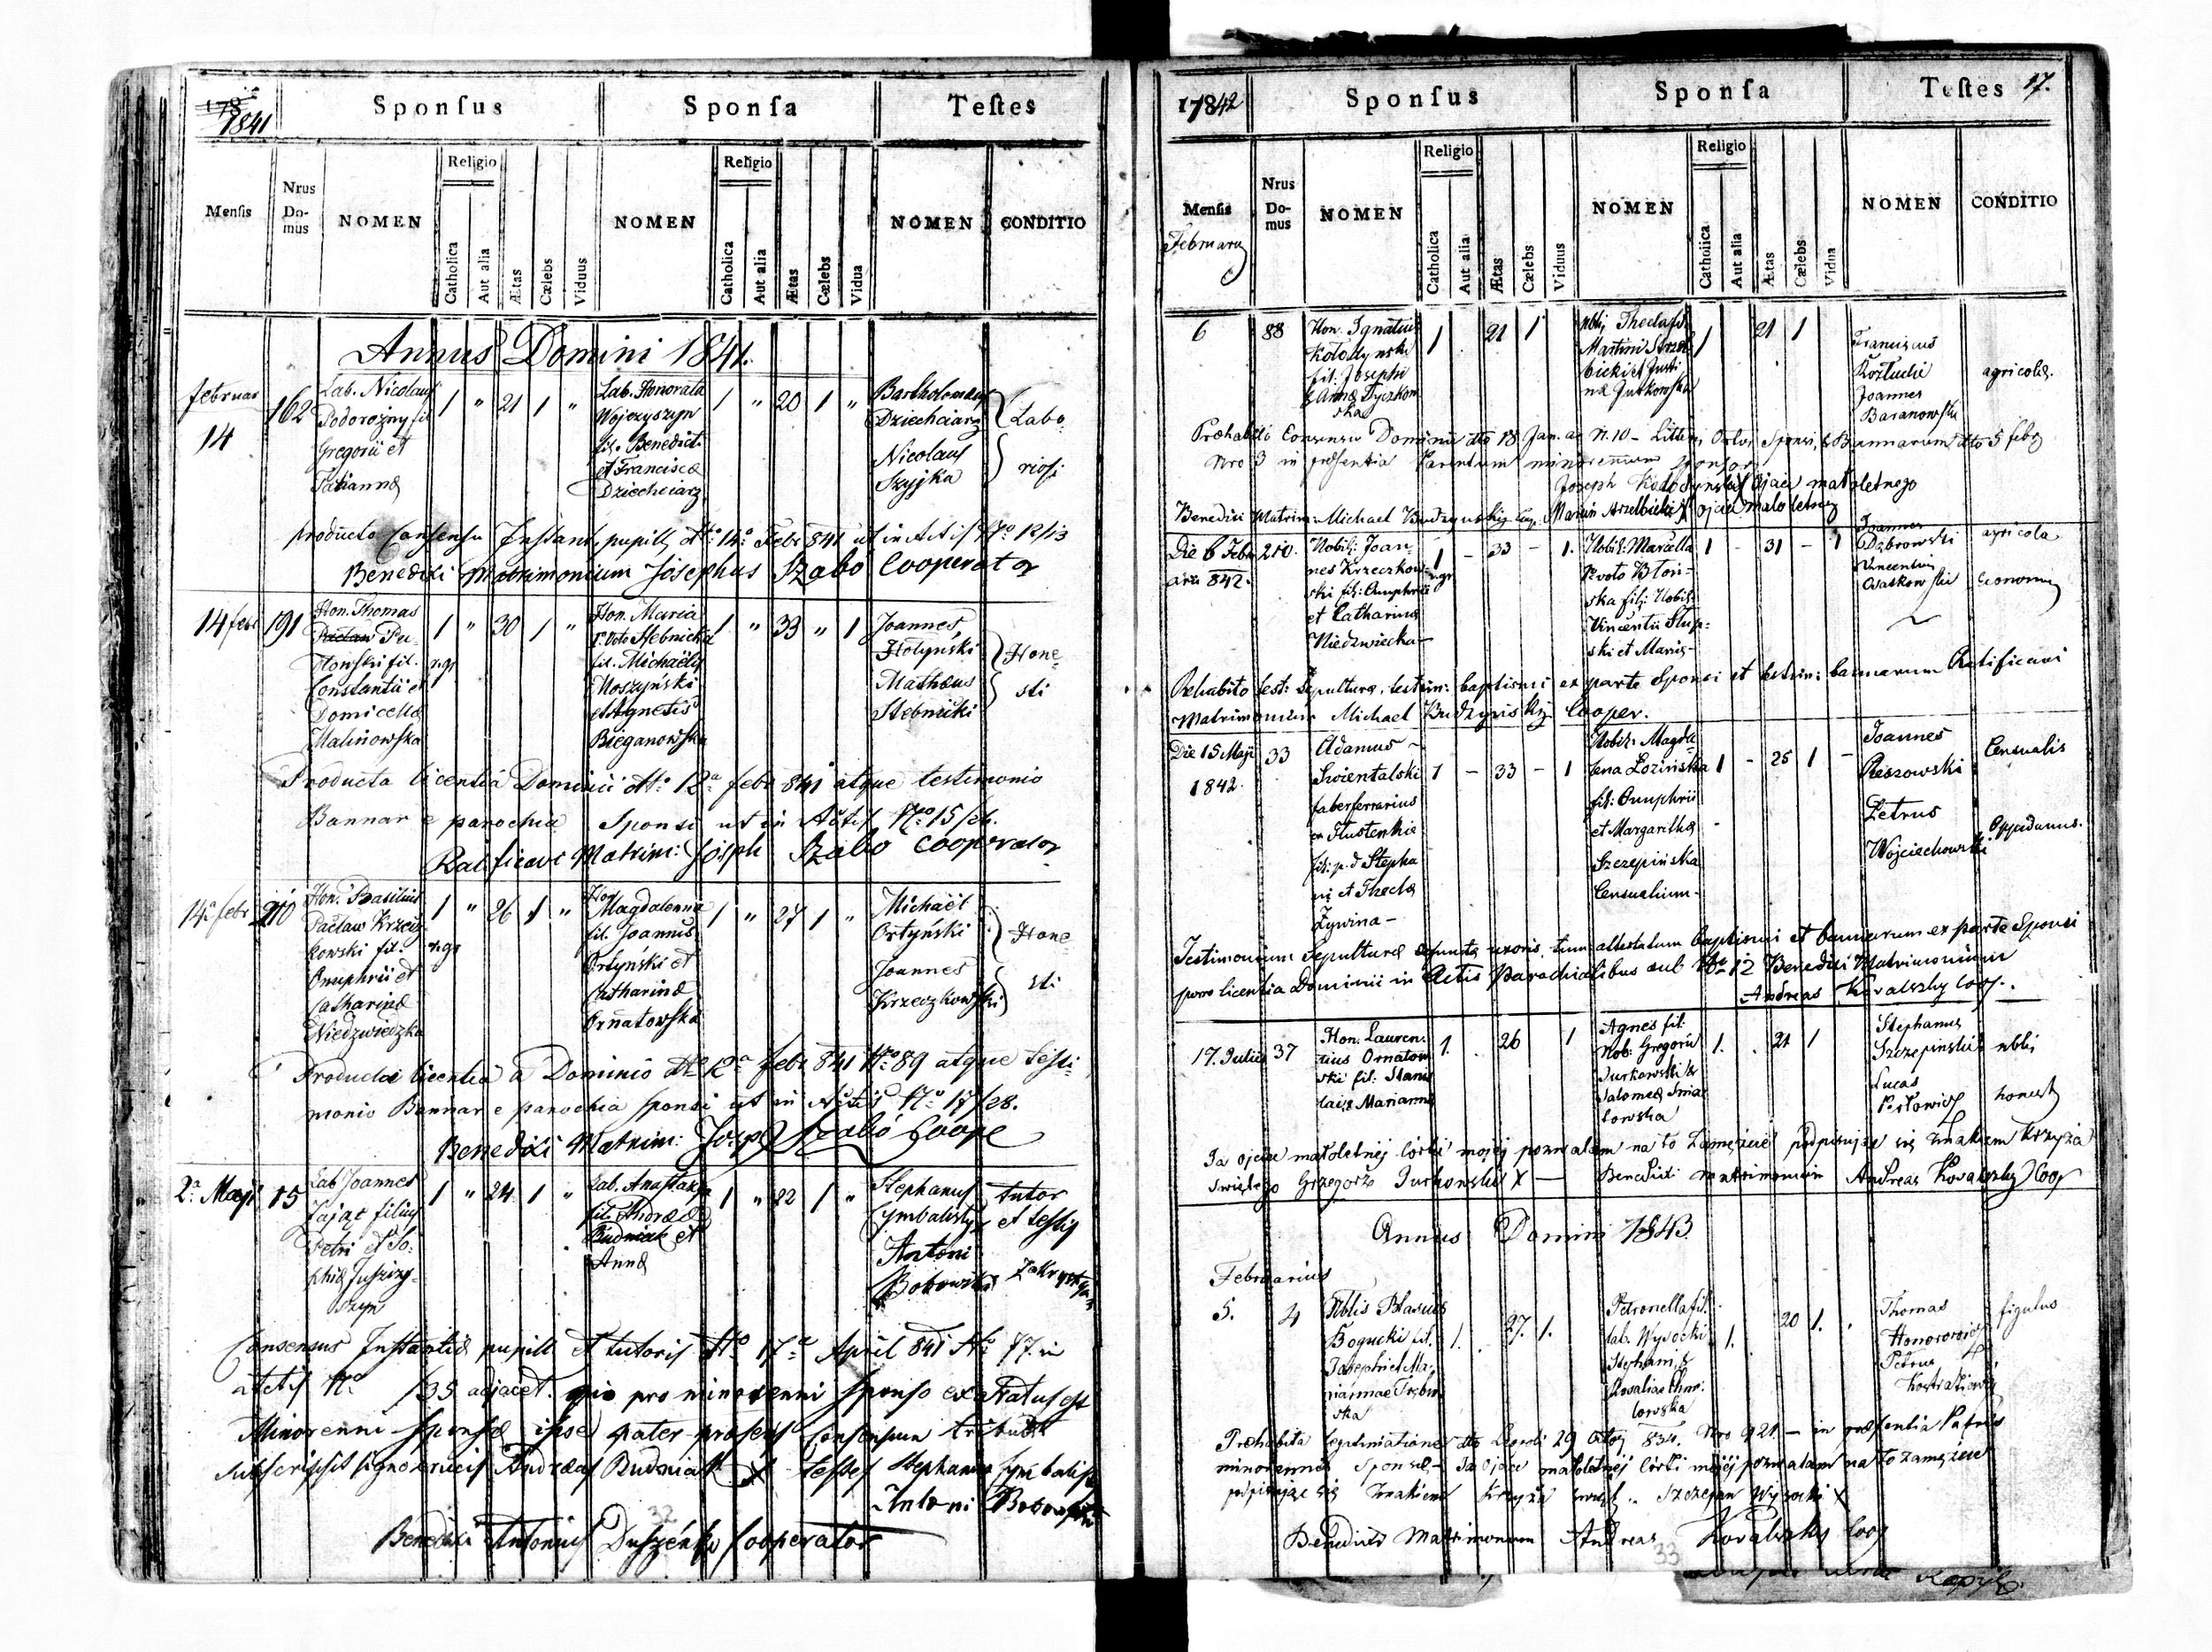 1841
Sponſus
Sponſa
Teſtes
Menſis
Nrus Do-mus
NOMEN
Religio
Catholica
Aut alia
Ætas
Cælebs
Viduus
NOMEN
Religio
Catholica
Aut alia
Ætas
Cælebs
Vidua
NOMEN
CONDITIO
Annus Domini 1841.
februar
14
162
Lab. Nicolaus
Podorożny fil
Gregorii et
Tatianna
1 " 21 1 "
Lab. Honorata
Wojczyszyn
fil. Benedict.
et Francisca
Dziechciarz
1 " 20 1 "
Bartholomeus
Dziechciarz
Nicolaus
Szyjka
Labo
riosi
producto Consensu Instant. pupill. dto 14a Febr 841 ut in Actis No 12/13
Benedixi Matrimonium Josephus Szabo Cooperator
14 febr
191
Hon. Thomas
Constantii et
Domicella
Malinowska
r.gr
1 " 30 1 "
Hon. Maria
1o Voto Stebnicka
fil. Michaëlis
Moszyński
et Agnetis
Bieganowska
1 " 33 " 1
Joannes
Hołyński
Mathæus
Stebnicki
Hone
sti
Producta licentia Dominii dto 12a febr 841 atque testimonio
Bannar e parochia Sponsi ut in Actis No 15/26.
Ratificavi Matrim: Joseph Szabo Cooperator
14a febr
210
Hon. Basilius
Pacław Krzecz
kowski fil.
Onuphrii et
Catharina
Niedzwiedzka
r.gr
1 " 26 1 "
Hon
Magdalenna
fil. Joannis
Ortyński et
Catharina
Ornatowska
1 " 27 1 "
Michaël
Ortyński
Joannes
Krzeczkowski
Hone
sti
Producta licentia a Dominio dto 12a febr 841 No 89 atque testi
monio Bannar e parochia sponsi ut in Actis No 17/28.
Benedixi Matrim: Josep Szabó Coope
2a Maji
15
Lab Joannes
Zając filius
Petri et So:
phia Juszczy-
szyn
1 " 24 1 "
Lab. Anastasia
fil. Andreæ
Budniak et
Anna
1 " 22 1 "
Stephanus
Cymbalisty
Antoni
Bobowski
tutor
et testis
Zakrystyan
Consensus Instantiæ pupill et tutoris dto 17a April 841 No 77 in
actis No 135 adjacet. qio pro minorenni sponso exaratus est
Minorenni sponsæ ipse pater præsens consensum tribuit
subscripsit signo crucis Andreas Budniak X testes Stephanus Cymbalisty
Antoni Bobowski
32
Benedixi Antonius Duszeńko Cooperator
17842
Sponſus
Sponſa
Teſtes
17.
Menſis
February
Nrus Do-mus
NOMEN
Religio
Catholica
Aut alia
Ætas
Cælebs
Viduus
NOMEN
Religio
Catholica
Aut alia
Ætas
Cælebs
Vidua
NOMEN
CONDITIO
6
88
Hon. Ignatius
Kołodynski
fil. Josephi
& Anna Tyczkow
ska
1 21 1
Nblis Thecla fil
Martini Strzel
bicki et Justi
na Jurkowska
1 21 1
Franciscus
Kozłucki
Joannes
Baranowski
agricolæ
Præhabito Consensu Dominii dto 18 Jan. ae N. 10 - Litteris Sponsi, & Bannarum dto 5 feby
Nro 3 in præsentia Parentum minorennum sponsor
Joseph Kołodynski X Ojciec małoletnego
Benedixi Matrim: Michael Budzynski Coop. Marcin Strzelbicki X ojciec małoletney
Die 6 Febru
arii 842.
210.
Nobil: Joan-
nes Krzeczkow
ski fil: Onuphrii
et Catharina
Niedzwiecka -
r.gr
1 - 33 - 1.
Nobil: Marcella
1o voto Błoń-
ska fil: Nobil:
Vincentii Słup-
ski et Maria -
1 - 31 - 1
Joannes
Dąbrowski
Vincentius
Waskowski
agricola
economus
Præhabito test: Sepultura, testim: baptismi ex parte Sponsi et testim: bannarum Ratificavi
Matrimonium Michael Budzyński Cooper.
Die 15 Maji
1842.
33
Adamus
Swientalski
faber ferrarius
ex Hustenkie
fil: p. d Stepha
ni et Thecla
Żywina -
1 - 33 - 1
Nobil: Magda
lena Łozińska
fil: Onuphrii
et Margaritha
Szczepińska
Censualium -
1 - 25 1 -
Joannes
Reszowski
Petrus
Wojciechowski
Censualis
Oppidanus.
Testimonium Sepultura defuncta uxoris, tum attestatum baptismi et bannarum ex parte Sponsi
porro licentia Dominii in Actis Parochialibus sub No 12 Benedixi Matrimonium
Andreas Kovalszky Coop.
17. Julius
37
Hon: Lauren-
tius Ornatow
ski fil: Stanis
lai & Marianna
1. 26 1
Agnes fil:
Nob: Gregorii
Jurkowski &
Salomea Smia
lowska
1. 21 1
Stephanus
Szczepinski
Lucas
nblis
honest
Ja ojciec małoletniej córki mojej pozwalam na to Zamęźcie podpisuje się znakiem krzyża
Swiętego Grzegorz Jurkowski X — Benedixi matrimonium Andreas Kovalszky Coop
Annus Domini 1843
Februarius
5.
4
Nblis Blasius
Bogucki fil.
Josephi et Ma-
riannae Trębin
ska
1. 27. 1.
Petronella fil.
lab. Wysocki
Stephani &
Rosaliae Chmie
lowska
1. 20 1.
Thomas
Petrus
figulus
Præhabita legitimatione dto Leopoli 29 834. Nro 921 - in præsentia Patris
minorennis Sponsæ - Ja Ojciec małoletniej córki mojej pozwalam na to zamęźcie
podpisuje się znakiem krzyża Szczepan Wysocki X
Benedixi Matrimonium Andreas Kovalszky Coop
33